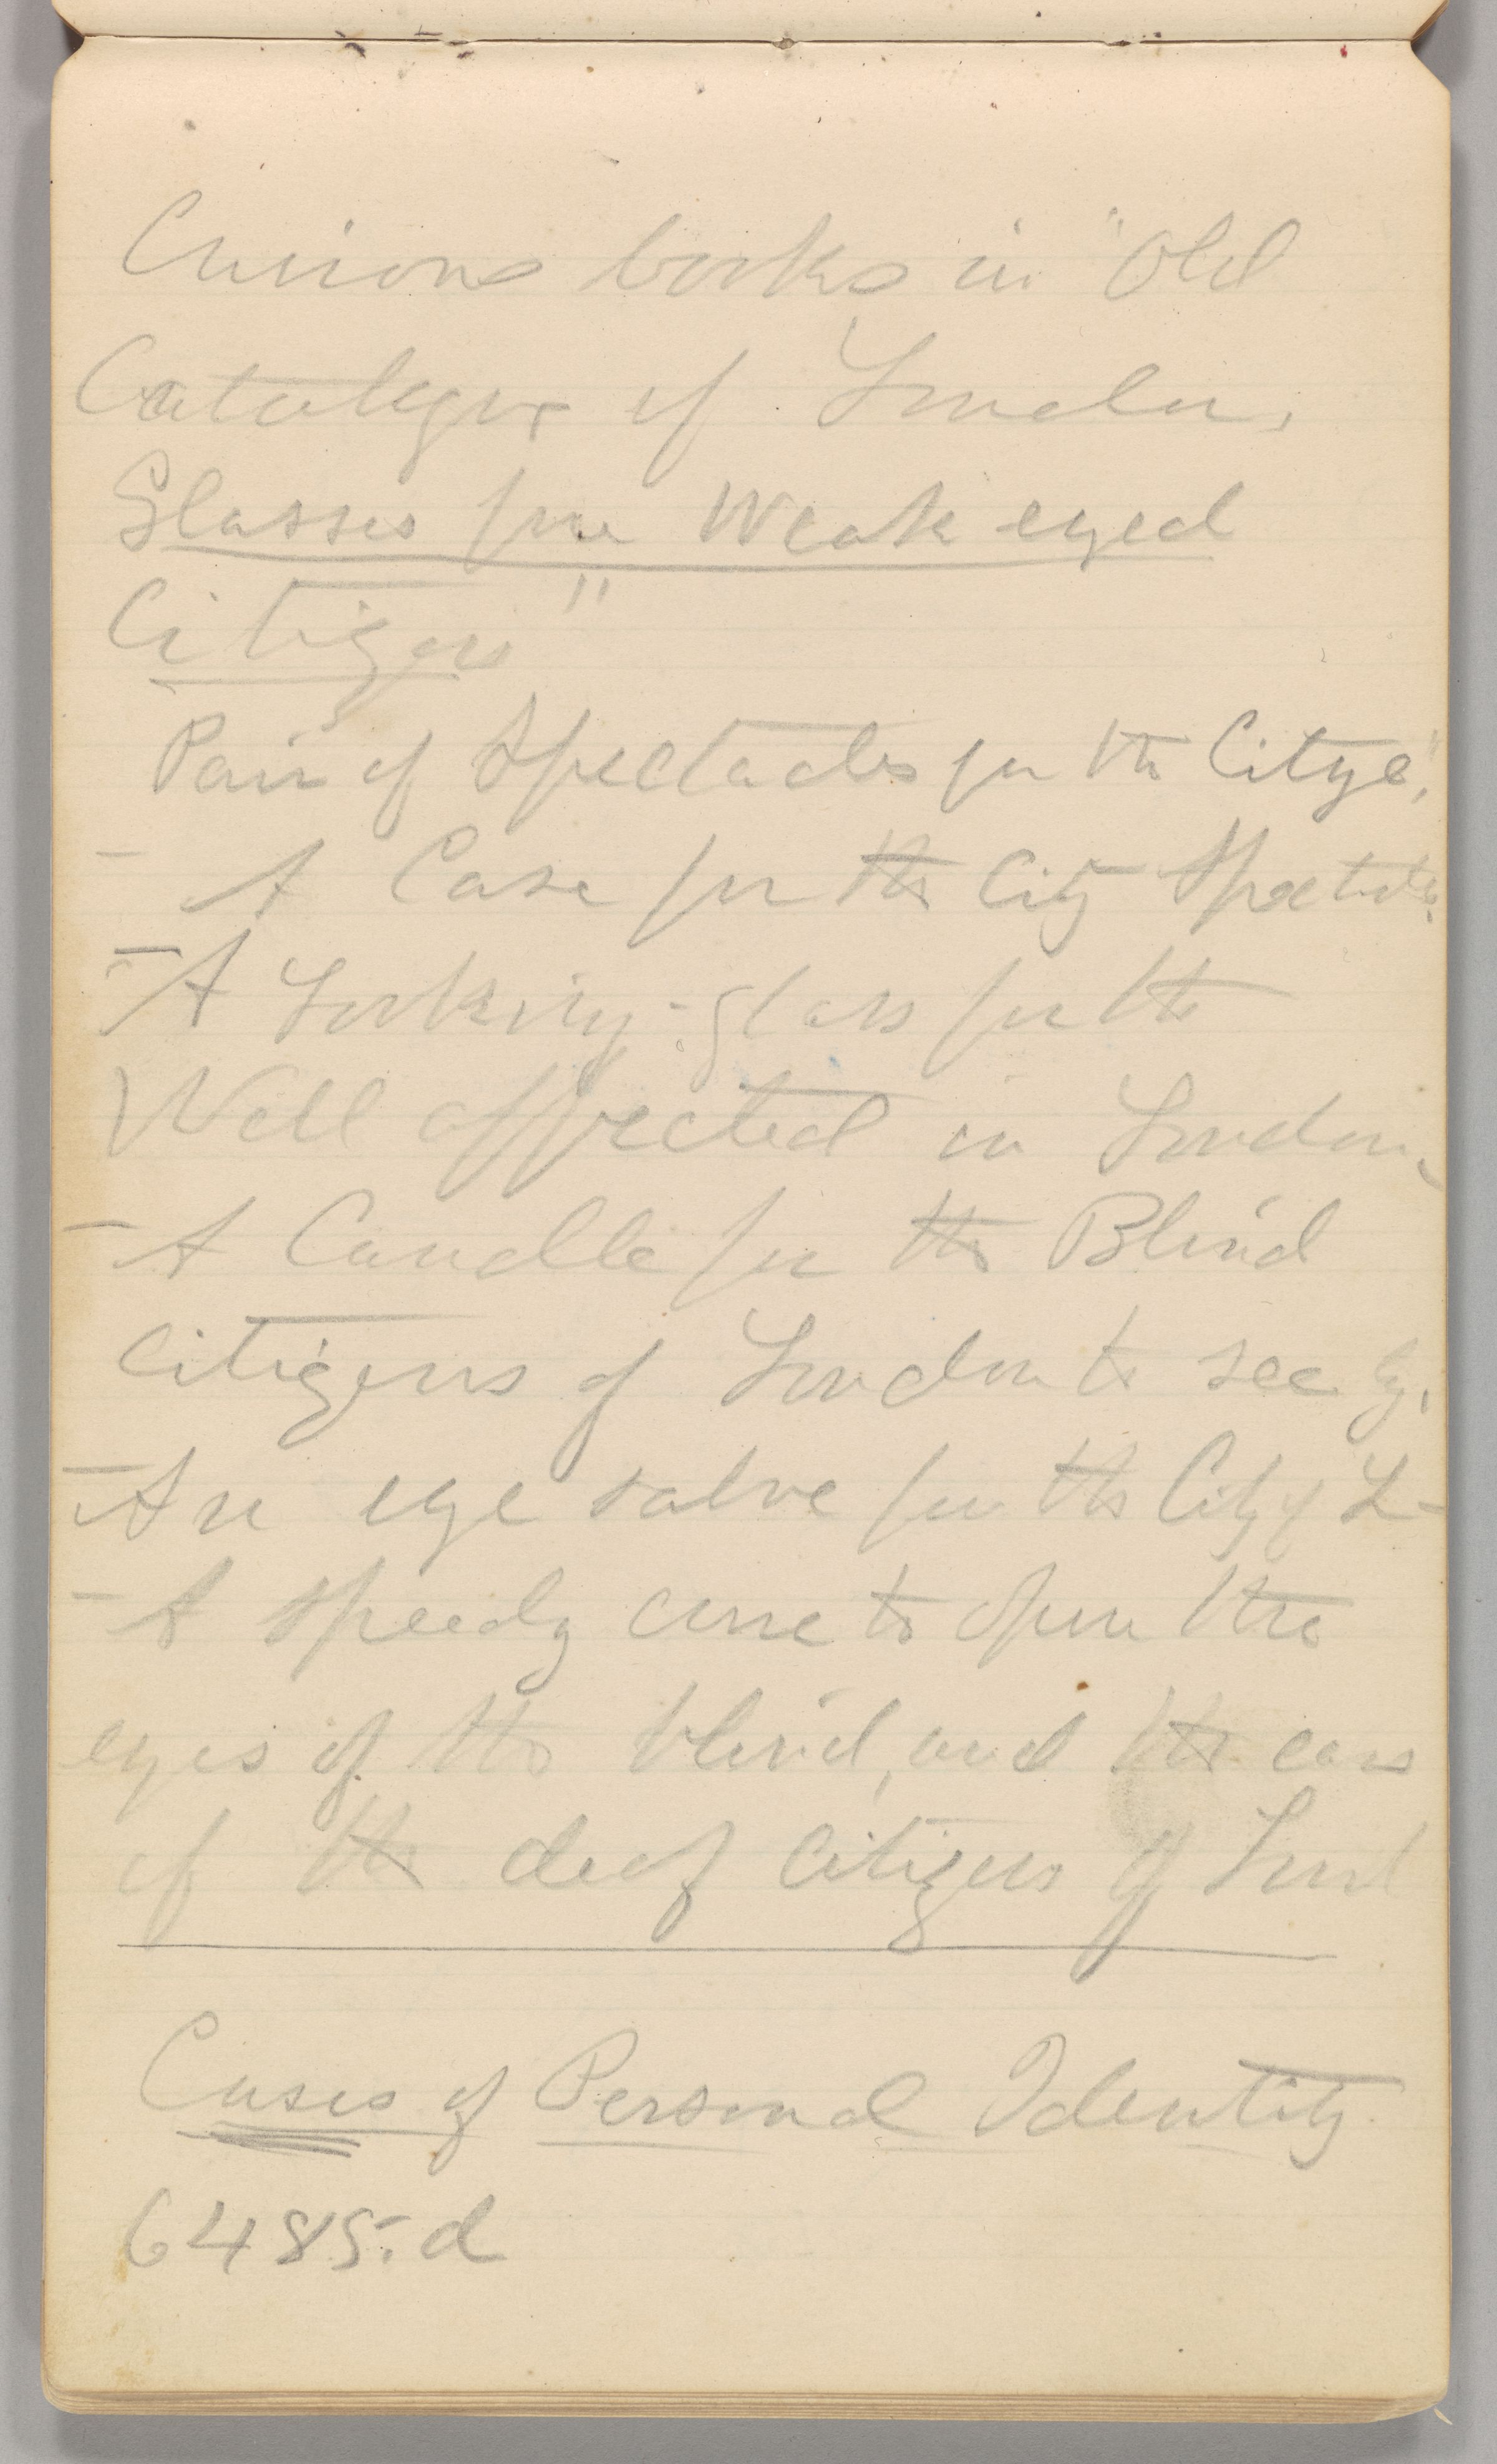 Curious books in "Old
Catalogue of London.
Glasses for Weak eyed
Citizens"
Pair of Spectacles for the Citye,"
- A Case for the City Spectacles.
- A Looking-glass for the
Well affected in London,
- A Candle for the Blind
Citizens of London to see by.
- An eye salve for the City of L-
- A speedy cure to open the
eyes of the blind, and the ears
of the deaf citizens of Lond
Cases of Personal Identity
6485.d